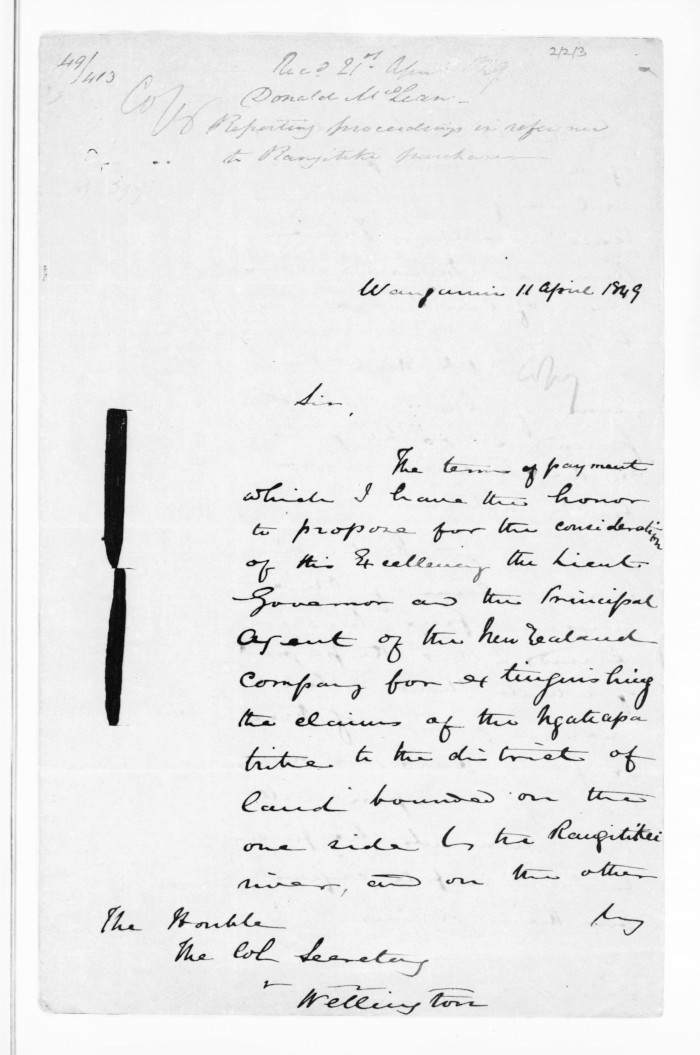 2/2/3
49/413
Recd 21st April 1849
Copy
Donald McLean
Reporting proceedings in reference
to Rangitike purchase
Wanganui 11 April 1849
Copy
Sir,
The terms of payment
which I have the honor
to propose for the consideration
of His Excellency the Lieut.
Governor and the Principal
Agent of the New Zealand
Company for extinguishing
the claims of the Ngatiapa
tribe to the district of
land bounded on the
one side by the Rangitikei
river, and on the other
by
The Honble
The Col Secretary
Wellington